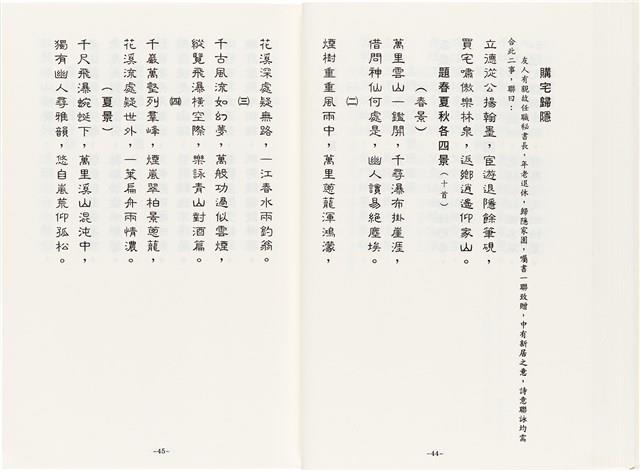 購宅歸隱
友人有親故任職秘書長，年老退休，歸隱家園，囑書一聯致贈，中有新居之意，詩意聯詠均需
合此二事，聯曰：
立德從公揚翰墨，宦遊退隱餘筆硯，
買宅嘯傲樂林泉，返鄉逍遙仰家山。
題春夏秋冬四景（十首）
（春景）
萬里雲山一鑑開，千尋瀑布掛崖涯，
借問神仙何處是，幽人讀易絕塵埃。
（二）
煙樹重重風雨中，萬里蔥蘢渾鴻濛，
-44-
花溪深處疑無路，一江春水兩釣翁。
（三）
千古風流如幻夢，萬般功過似雲煙，
縱覽飛瀑橫空際，樂詠青山對酒篇。
（四）
千巖萬壑列羣峰，煙嵐翠柏景蔥蘢，
花溪流處疑世外，一葉扁舟兩情濃。
（夏景）
千尺飛瀑蜿蜒下，萬里溪山混沌中，
獨有幽人尋雅韻，悠自嵐荒仰孤松。
-45-